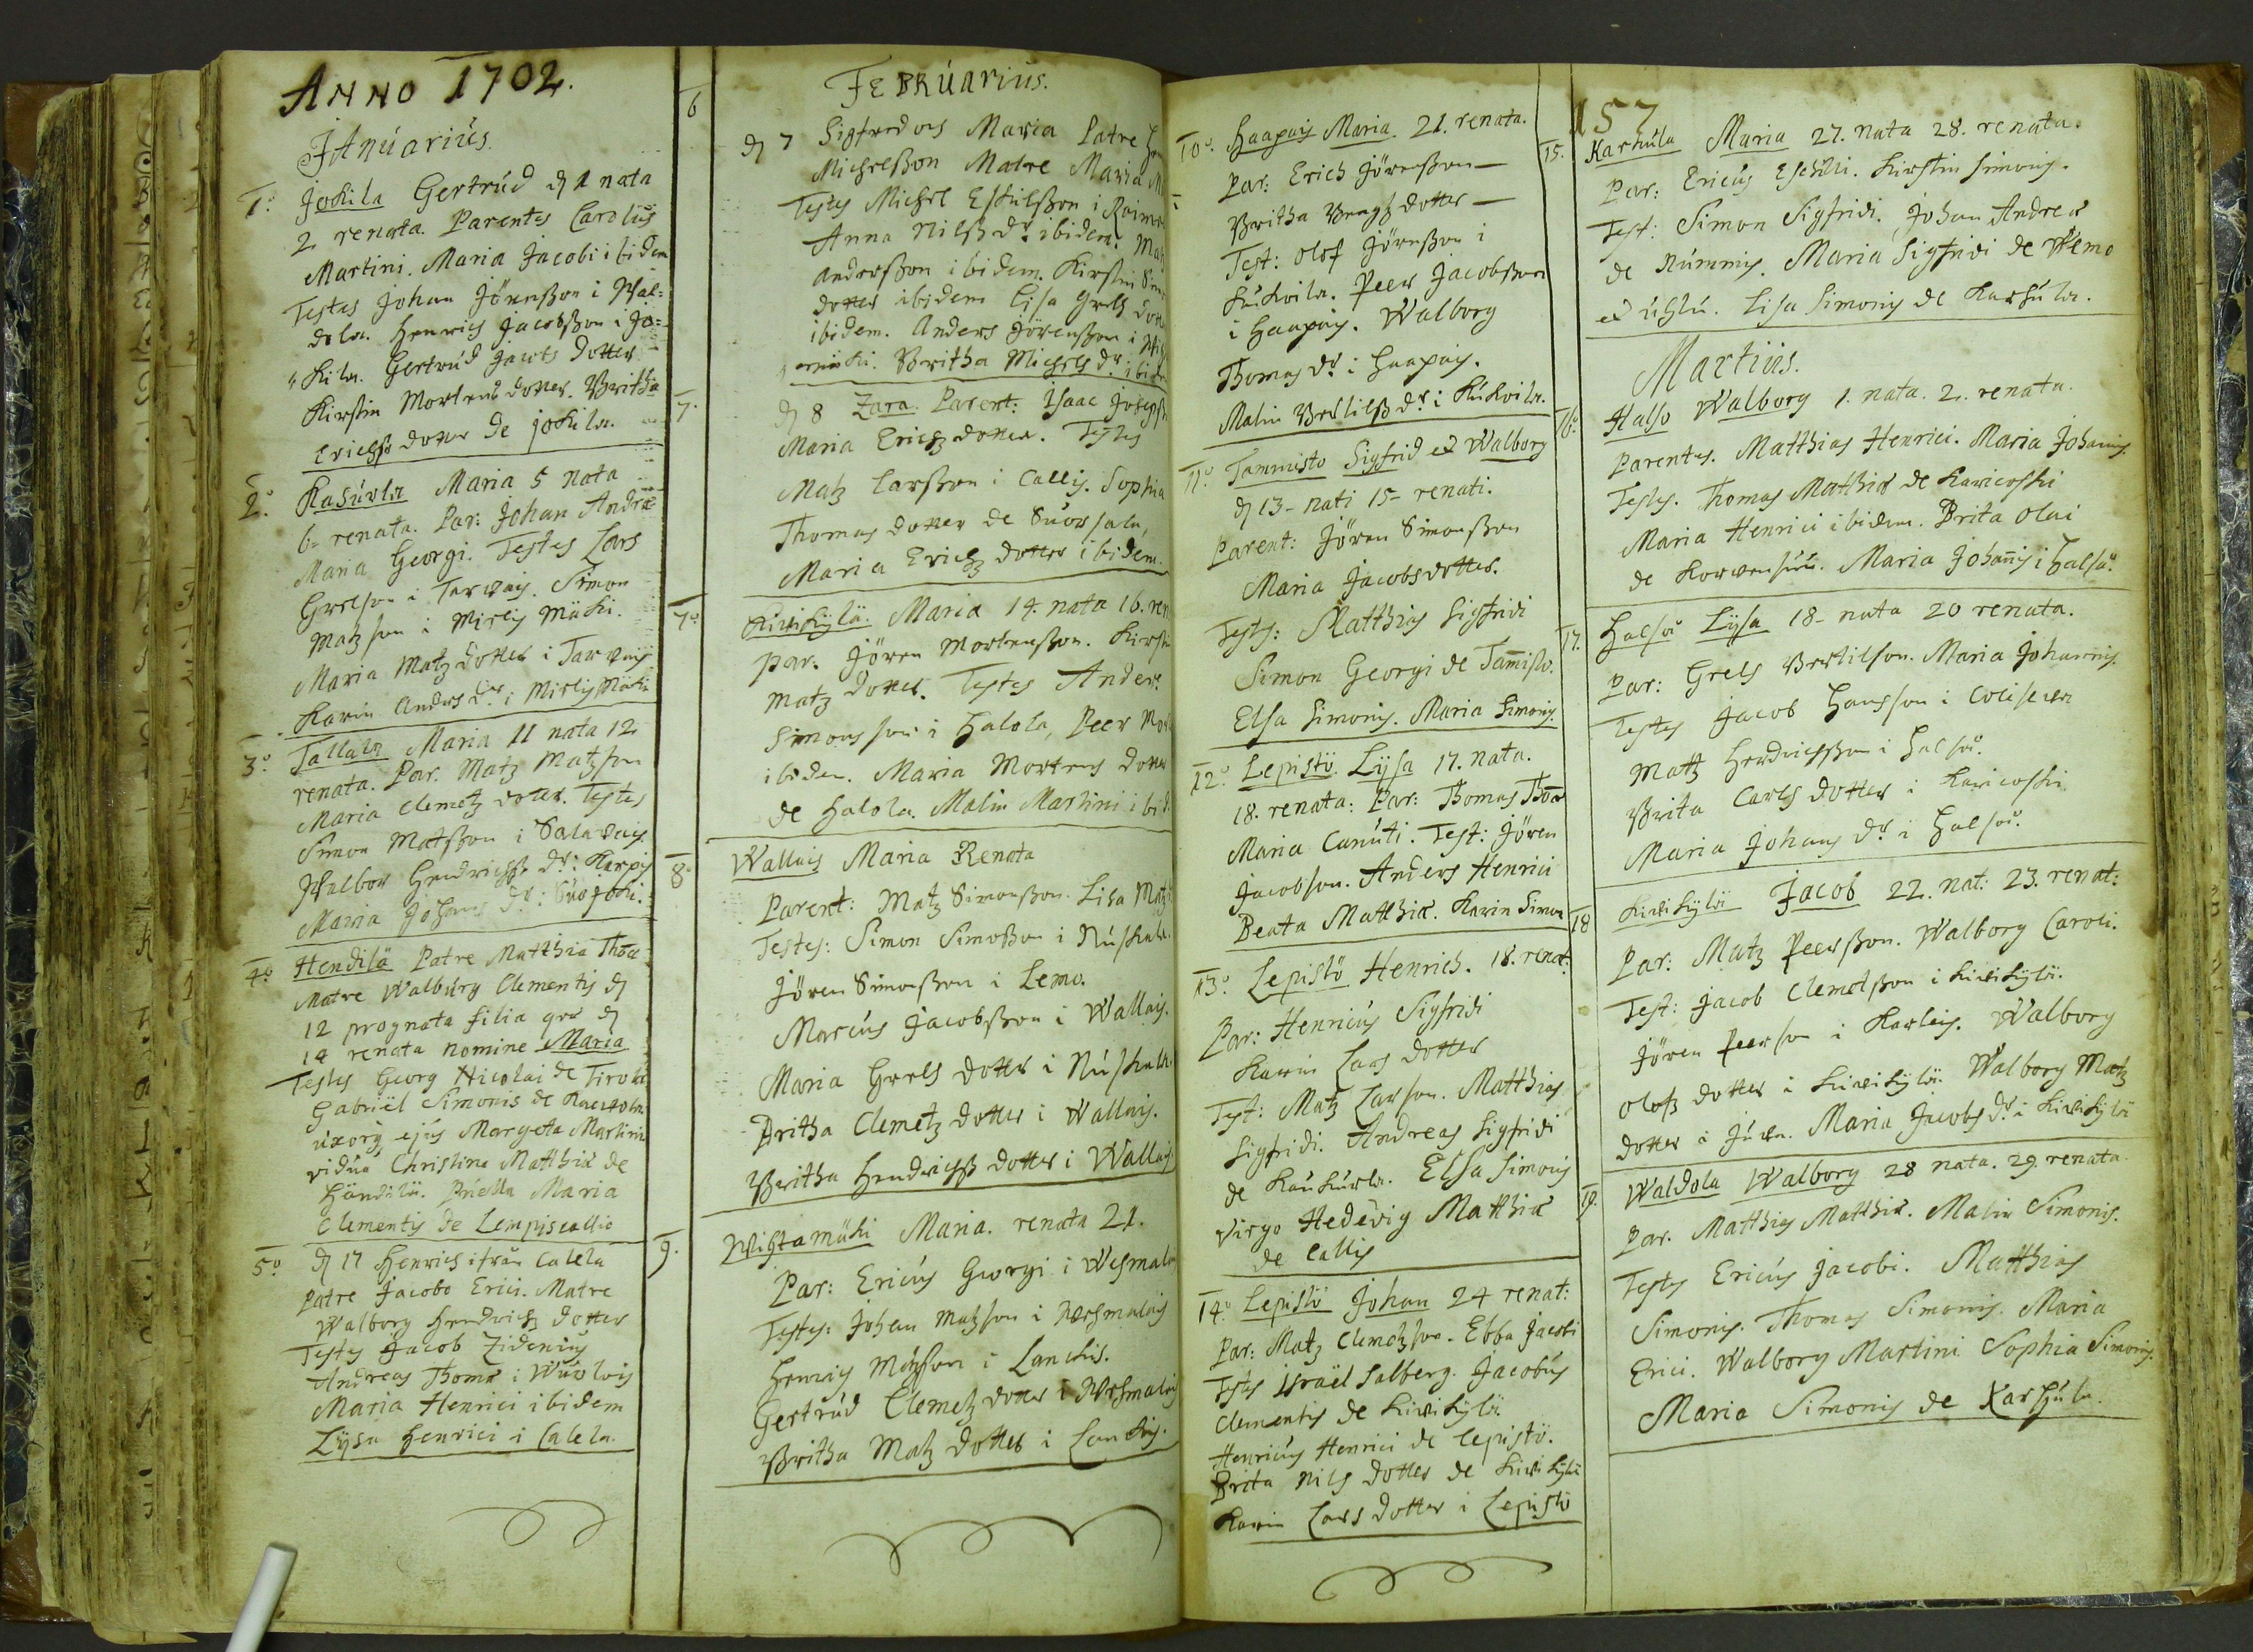 ANNO 1702.
JAnuarius.
1.o Jokila Gertrud d 1 nata
2 renata. Parentes Carolus
Martini. Maria Jacobi ibidem
Testes Johan Jörenßon i Wal=
dola. Henrich Jacobßon i Jo=
"kila. Gertrud Jacobs dotter
Kirstin Mortens dotter. Britha
Erichs dotter de jokila.
2.o Kasuvla Maria 5 nata
6 renata. Par: Johan Andræ
Maria Georgi. Testes Lars
Grelson i Tarvais. Simon
Matzson i Mirlis Mäki.
Maria Matz dotter i Tarvais
Karin Anders dr i Mirlis Mäki
3.o Tallala Maria 11 nata 12
renata. Par. Matz Matzson
Maria Clemetz dotter. Testes
Simon Matßon i Salavais
Walbor Hendrichs dr: i Karpis
Maria Johans dr: i Suojoki.
4.o Hendilä Patre Matthia Thomæ
Matre Walburg Clementis d
12 prognata filia quæ d
14 renata nomine Maria
Testes Georg Nicolai de Tirola
Gabriël Simonis de
uxor ejus Margeta Martini
vidua Christina Matthiæ de
Händilä. Puella Maria
Clementis de Lempiscallio
5.o d 17 Henrich ifrån Calela
Patre Jacobo Erici. Matre
Walborg Hendrichs dotter
Testes Jacob Zidenius
Andreas Thomæ i
Maria Henrici ibidem
Lysa Henrici i Calela.
FEBRuarius.
6 d 7 Sigfredois Maria Patre
Michelßon Matre Maria
Testes Michel Eskilßon i
Anna Nilß dr ibidem.
Anderßon ibidem. Kirstin
dotter ibidem Lisa Grels
ibidem. Anders Jörenßon i
Britha Michels dr ibidem
7. d 8 Zara. Parent: Isaac
Maria Erichz dotter. Testes
Matz Larsson i Callis. Sophia
Thomas dotter de
Maria Erichz dotter ibidem
7.o Kivikylä. Maria 14. nata 16. ren
Par. Jören Mortenßon. Kirstin
Matz dotter. Testes Anders
Simonsson i Halola, Peer
ibidem. Maria Mortens dotter
de Halola. Malin Martini ibid
8.o Wallais Maria Renata
Parent: Matz Simonßon. Lisa Matz
Testes: Simon Simoßon i Nuskala.
Jören Simonßon i Lemo.
Marcus Jacobßon i Wallais.
Maria Grels dotter i Nuskala.
Britha Clemetz dotter i Wallais.
Britha Hendrichß dotter i Wallais
9. Wihtamäki Maria. renata 21.
Par: Ericus Georgi i
Testes: Johan Matzson i Wehmalais
Henrich i Lankis.
Gertrud Clemetz dotter i Wehmalais
Britha Matz dotter i Lankis.
10.o Haapais Maria. 21. renata.
Par: Erich Jörenßon—
Britha dotter—
Test: Olof Jörenßon i
Kukoila. Peer Jacobßon
i Haapais. Walborg
Thomas dr i Haapais.
Malin Bertilß dr i Kukoila.
11.o Tammisto Sigfrid et Walborg
d 13- nati 15- renati.
Parent: Jören Simonßon
Maria Jacobsdotter.
Testes: Matthias Sigfridi
Simon Georgi de Tam̄isto.
Elsa Simonis. Maria Simonis.
12.o Lepistö. Lysa 17. nata.
18. renata: Par: Thomas Thomæ
Maria Canuti. Test: Jören
Jacobson. Anders Henrici
Beata Matthiæ. Karin Simon
13.o Lepistö Henrich. 18. renat:
Par: Henricus Sigfridi
Karin Lars dotter
Test: Matz Larson. Matthias
Sigfridi. Andreas Sigfridi
de Elsa Simonis
Virgo Hedevig Matthiæ
de Callis
14.o Lepistö Johan 24 renat:
Par: Matz Clemetzson. Ebba Jacobi
Testes Israël Salberg. Jacobus
Clementis de Kivikylä.
Henricus Henrici de Lepistö.
Brita Nils dotter de Kivikylä
Karin Lars dotter i Lepistö
157
15. Karhula Maria 27. nata 28. renata.
Par: Ericus Eschilli. Kirstin Simonis.
Test: Simon Sigfridi. Johan Andreæ
de Nummis. Maria Sigfridi de
et uhlu. Lisa Simonis de Karhula.
Martius.
16.o Halso Walborg 1. nata. 2. renata.
Parentes. Matthias Henrici. Maria Johannis
Testes. Thomas Matthiæ de Karicoski
Maria Henrici ibidem. Brita Olai
de Korvensuu. Maria Johannis i Halså.
17. Halså Lysa 18- nata 20 renata.
Par: Grels Bertilson. Maria Johannis.
Testes Jacob Hansson i
Mattz Hendrichsson i Halså.
Brita Carls dotter i Karicoski.
Maria Johans dr i Halså.
18 Kivikylä Jacob 22. nat: 23. renat:
Par: Matz Peerßon. Walborg Caroli.
Test: Jacob Clemetßon i Kivikylä.
Jören Peerson i Karlais. Walborg
Olofs dotter i Kivikylä. Walborg Matz
dotter i Juva. Maria Jacobs dr i Kivikylä
19. Waldola Walborg 28 nata. 29. renata
Par. Matthias Matthiæ. Malin Simonis.
Testes Ericus Jacobi. Matthias
Simonis. Thomas Simonis. Maria
Erici. Walborg Martini Sophia Simonis.
Maria Simonis de Karhula.